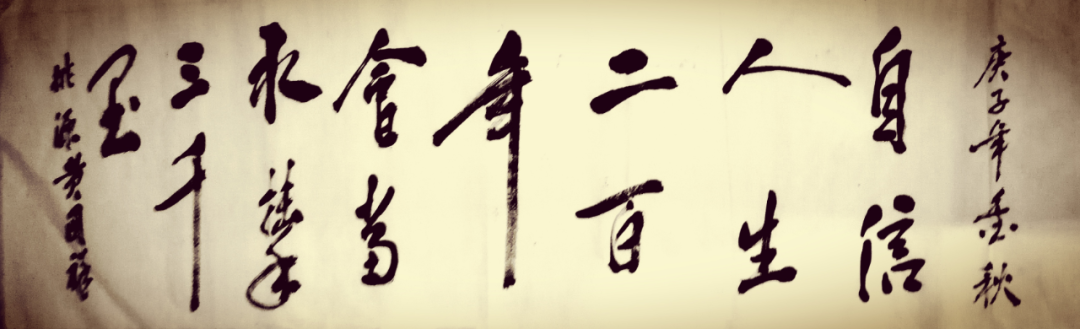 庚子年秋
自信
人生
二百
年
會當
水擊
三千
里
桃源黄